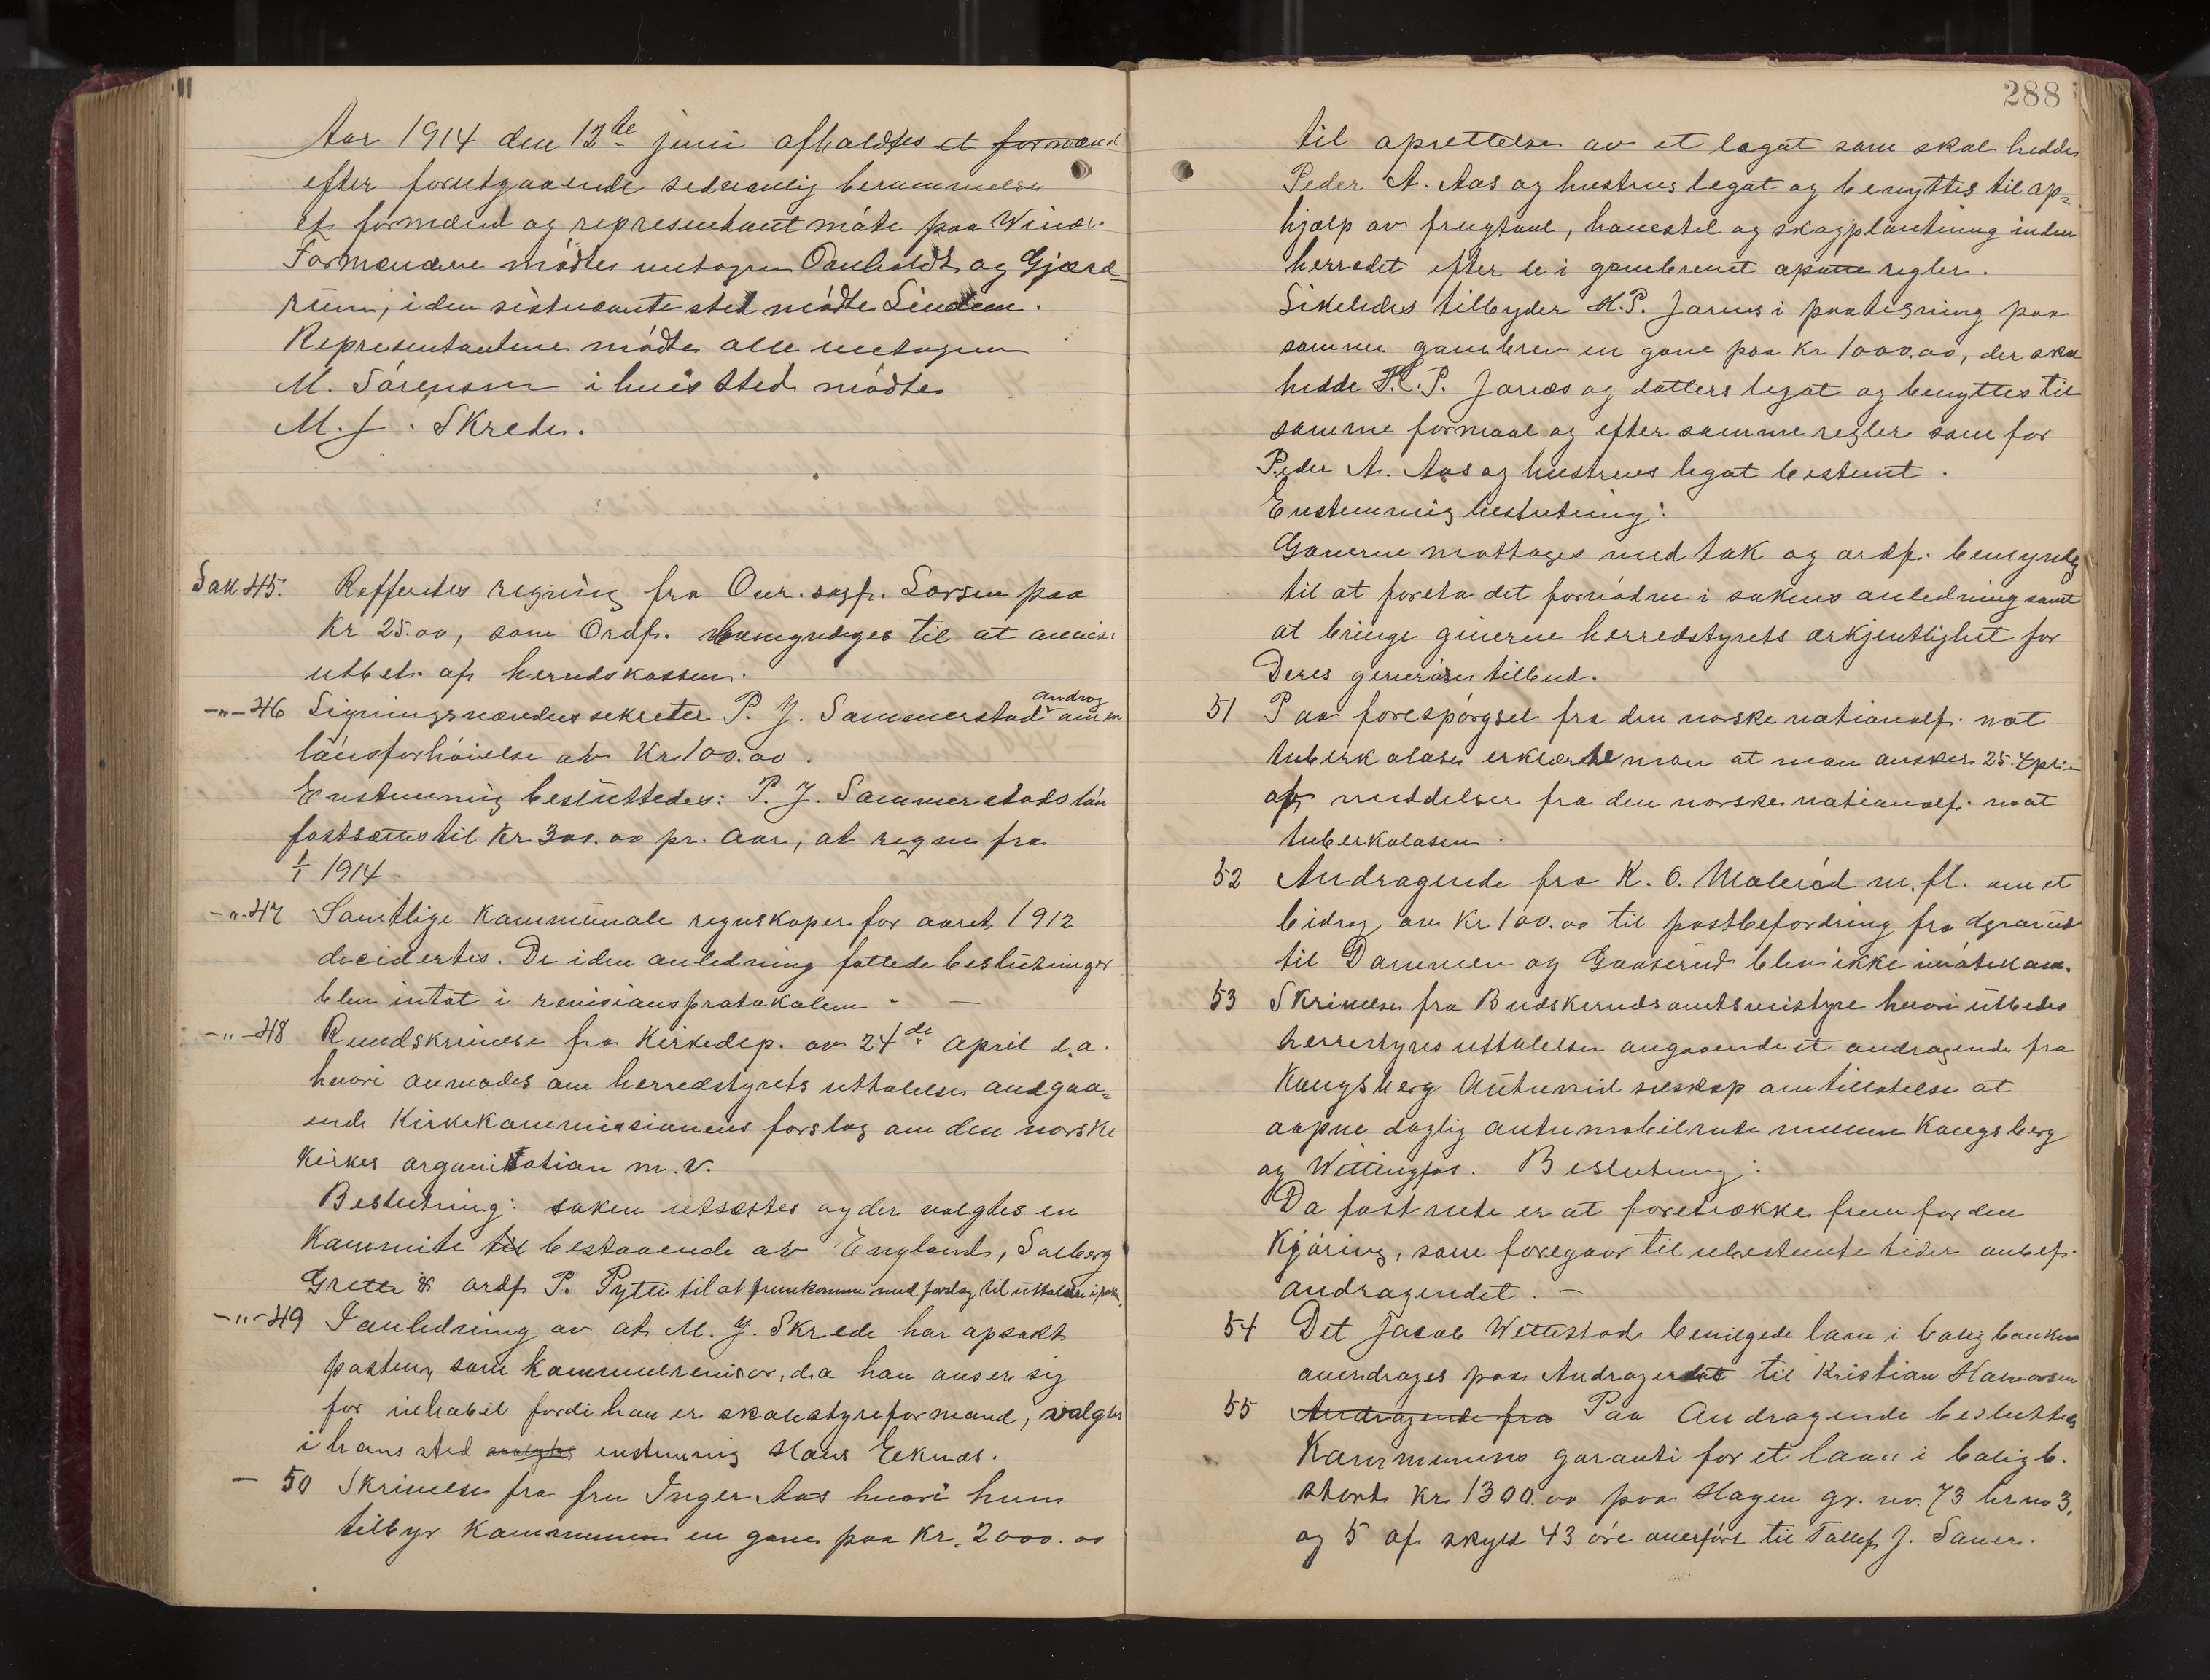 Aar 1914 den 12te juni afholdtes et formænd
efter forutgaaende sedvanlig berammelse
et formænd og representant møte paa Winæs.
Formændene mødte undtagen Omholdt og Gjærd=
rum, i den sistnævnte sted mødte Lindem.
Representantene mødte alle undtagen
M. Sørensen i hvis sted mødte
M. J. Skrede.
Sak 45. Refferertes regning fra Ovr. sagf. Larsen paa
Kr 25.00, som Ordf. bemyndiges til at anvise
utbet. af herredskassen.
-"- 46 Ligningsnævndens sekretær P. J. Sammerstad androg om en
lønsforhøielse av Kr. 100.00.
Enstemmig besluttedes: P. J. Sammerstads løn
fastsættes til Kr 300.00 pr. Aar, at regne fra
1/1 1914
-"- 47 Samtlige Kommunale regnskaper for aaret 1912
decidertes. De i den anledning fattede beslutninger
blev intat i revisionsprotokolen. —
-"- 48 Rundskrivelse fra Kirkedep. av 24de April d.a.
hvori anmodes om herredstyrets uttalelse andgaa=
ende Kirkekommissionens forslag om den norske
Kirkes organisation m.v.
Beslutning: saken utsættes og der valgtes en
Kommite til bestaaende av England, Solberg
Grette & ordf P. Pytte til at fremkomme med forslag til uttalelse i sak.
-"- 49 I anledning av at M. J. Skrede har opsakt
posten som kommunerevisor, da han anser sig
for inhabil fordi han er skolestyreformand, valgtes
i hans sted enstemmig Hans Eeknæs.
— 50 Skrivelse fra fru Inger Aas hvori hun
tilbyr Kommunen en gave paa Kr. 2000.00
288
til oprettelse av et legat som skal hedde
Peder A. Aas og hustrus legat og benyttes til op=
hjælp av frugtavl, havestel og skogplantning inden
herredet efter de i gavebrevet opsatte regler.
Likeledes tilbyder H.P. Jarnes i paategning paa
samme gavebrev en gave paa Kr 1000.00, der skal
hedde H.P. Jarnæs og datters legat og benyttes til
samme formaal og efter samme regler som for
Peder A. Aas og hustrues legat bestemt.
Enstemmig beslutning:
Gaverne mottages med tak og ordf. bemyndig
til at foreta det fornødne i sakens anledning samt
at bringe giverne herredstyrets ærkjentlighet for
Deres generøse tilbud.
51 Paa forespørgsel fra den norske nationalf. mot
tuberkolose erklærte man at man ønsker 25. Epl.
af meddelser fra den norske nationalf. mot
tuberkolosen.
52 Andragende fra K. O. Moleród m.fl. om et
bidrag av Kr 100.00 til postbefordring fra
til Dammen og Gaaserud blev ikke imøtekom.
53 Skrivelse fra Buskerudsamtsveistyre hvori utbedes
herrestyres uttalelse angaaende et andragende fra
Kongsberg Automobil selskap om tillatelse at
aapne daglig automobilrute mellem Kongsberg
og Wittingfos. Beslutning:
Da fast rute er at foretrække frem for den
Kjøring, som foregaar til ubestemte tider anbef.
andragendet. —
54 Det Jacob Wettestad bevilgede laan i boligbanken
overdrages paa Andragendet til Kristian Halvorsen
55 Andragende fra Paa Andragende besluttedes
Kommunens garanti for et laan i boligb.
stort Kr. 1300.00 paa Hagen gr. nr. 73 br no 3,
og 5 af skyld 43 øre overført til Tollef J. Sauer.